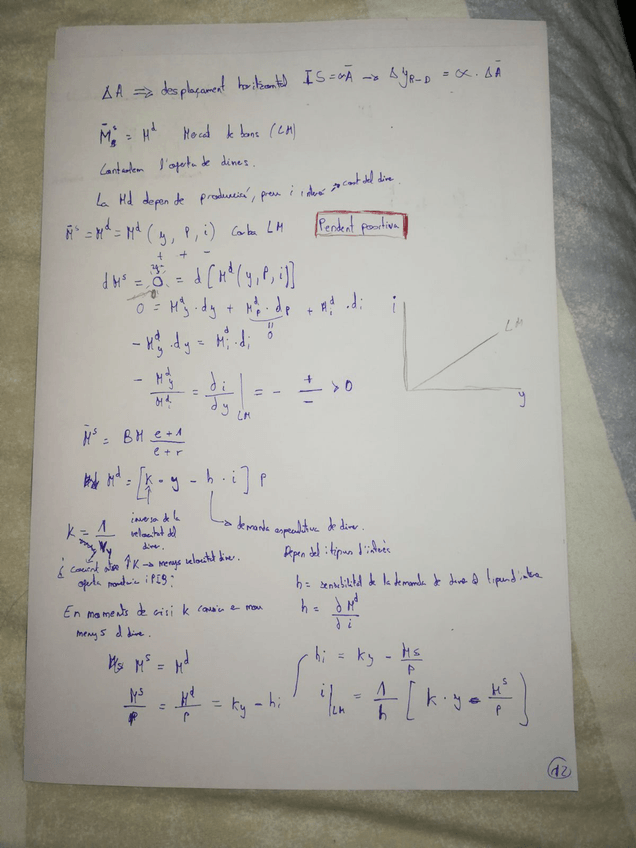 ΔA ⇒ desplaçament horitzontal IS = αĀ → Δy_{B-D} = α · ΔĀ
M̄ˢ_B = Mᵈ Mercat de bons (LM)
l'oferta de diners.
La Md depen de producció, preu i interés → cost del diner
M̄ˢ = Mᵈ = Mᵈ (y, P, i) Corba LM Pendent positiva
+ + -
dMˢ = 0 = d [Mᵈ(y, P, i)]
0 = Mᵈ_y · dy + Mᵈ_p · dp + Mᵈ_i · di
0
- Mᵈ_y · dy = Mᵈ_i · di
- Mᵈ_y / Mᵈ_i = di/dy |_LM = - +/- > 0
i
LM
y
M̄ˢ = BM (e+1)/(e+r)
Mᵈ = [k · y - h · i] P
k = 1/V_y
inversa de la
velocitat del
diner.
→ demanda especulativa de diner.
Depen del tipus d'interés
↑k → menys velocitat diner.
oferta monetaria i PIB
h = sensibilitat de la demanda de dine a tipus d'interes
h = ∂Mᵈ/∂i
En moments de crisi k
menys el dine.
Mˢ = Mᵈ
Mˢ/P = Mᵈ/P = ky - hi
hi = ky - Ms/P
i|_LM = 1/h [k · y - Mˢ/P]
12